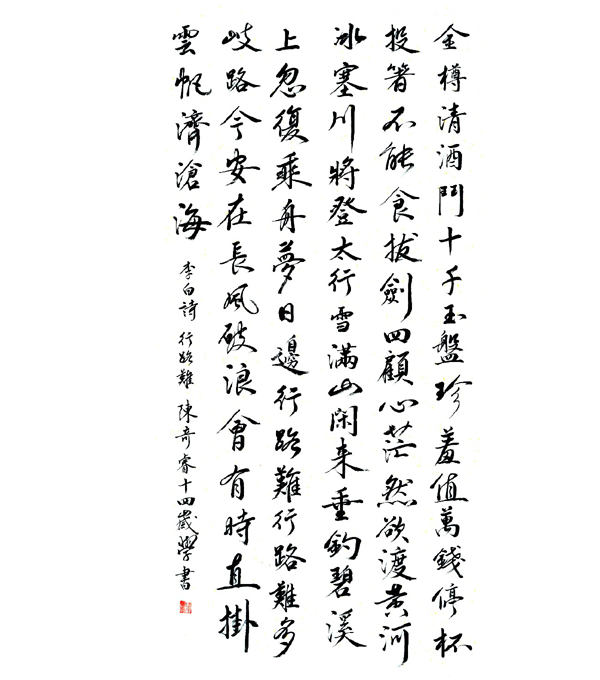 金樽清酒鬥十千玉盤珍羞值萬錢停杯
投箸不能食拔劍四顧心茫然欲渡黃河
冰塞川將登太行雪滿山閑来垂釣碧溪
上忽復乘舟夢日邊行路難行路難多
歧路今安在長風破浪會有時直掛
雲帆濟滄海
李白詩 行路難 陳奇睿十四歲學書